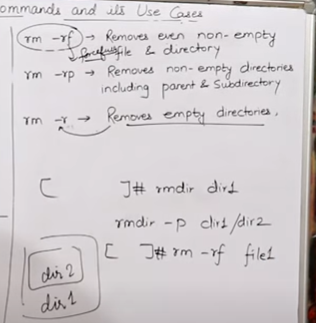 ommands and its Use Cases
rm -rf → Removes even non-empty
forcefully file & directory
rm -rp → Removes non-empty directories
including parent & Subdirectory
rm -r → Removes empty directories.
[ ]# rmdir dir1
rmdir -p dir1/dir2
[ ]# rm -rf file1
dir2
dir1